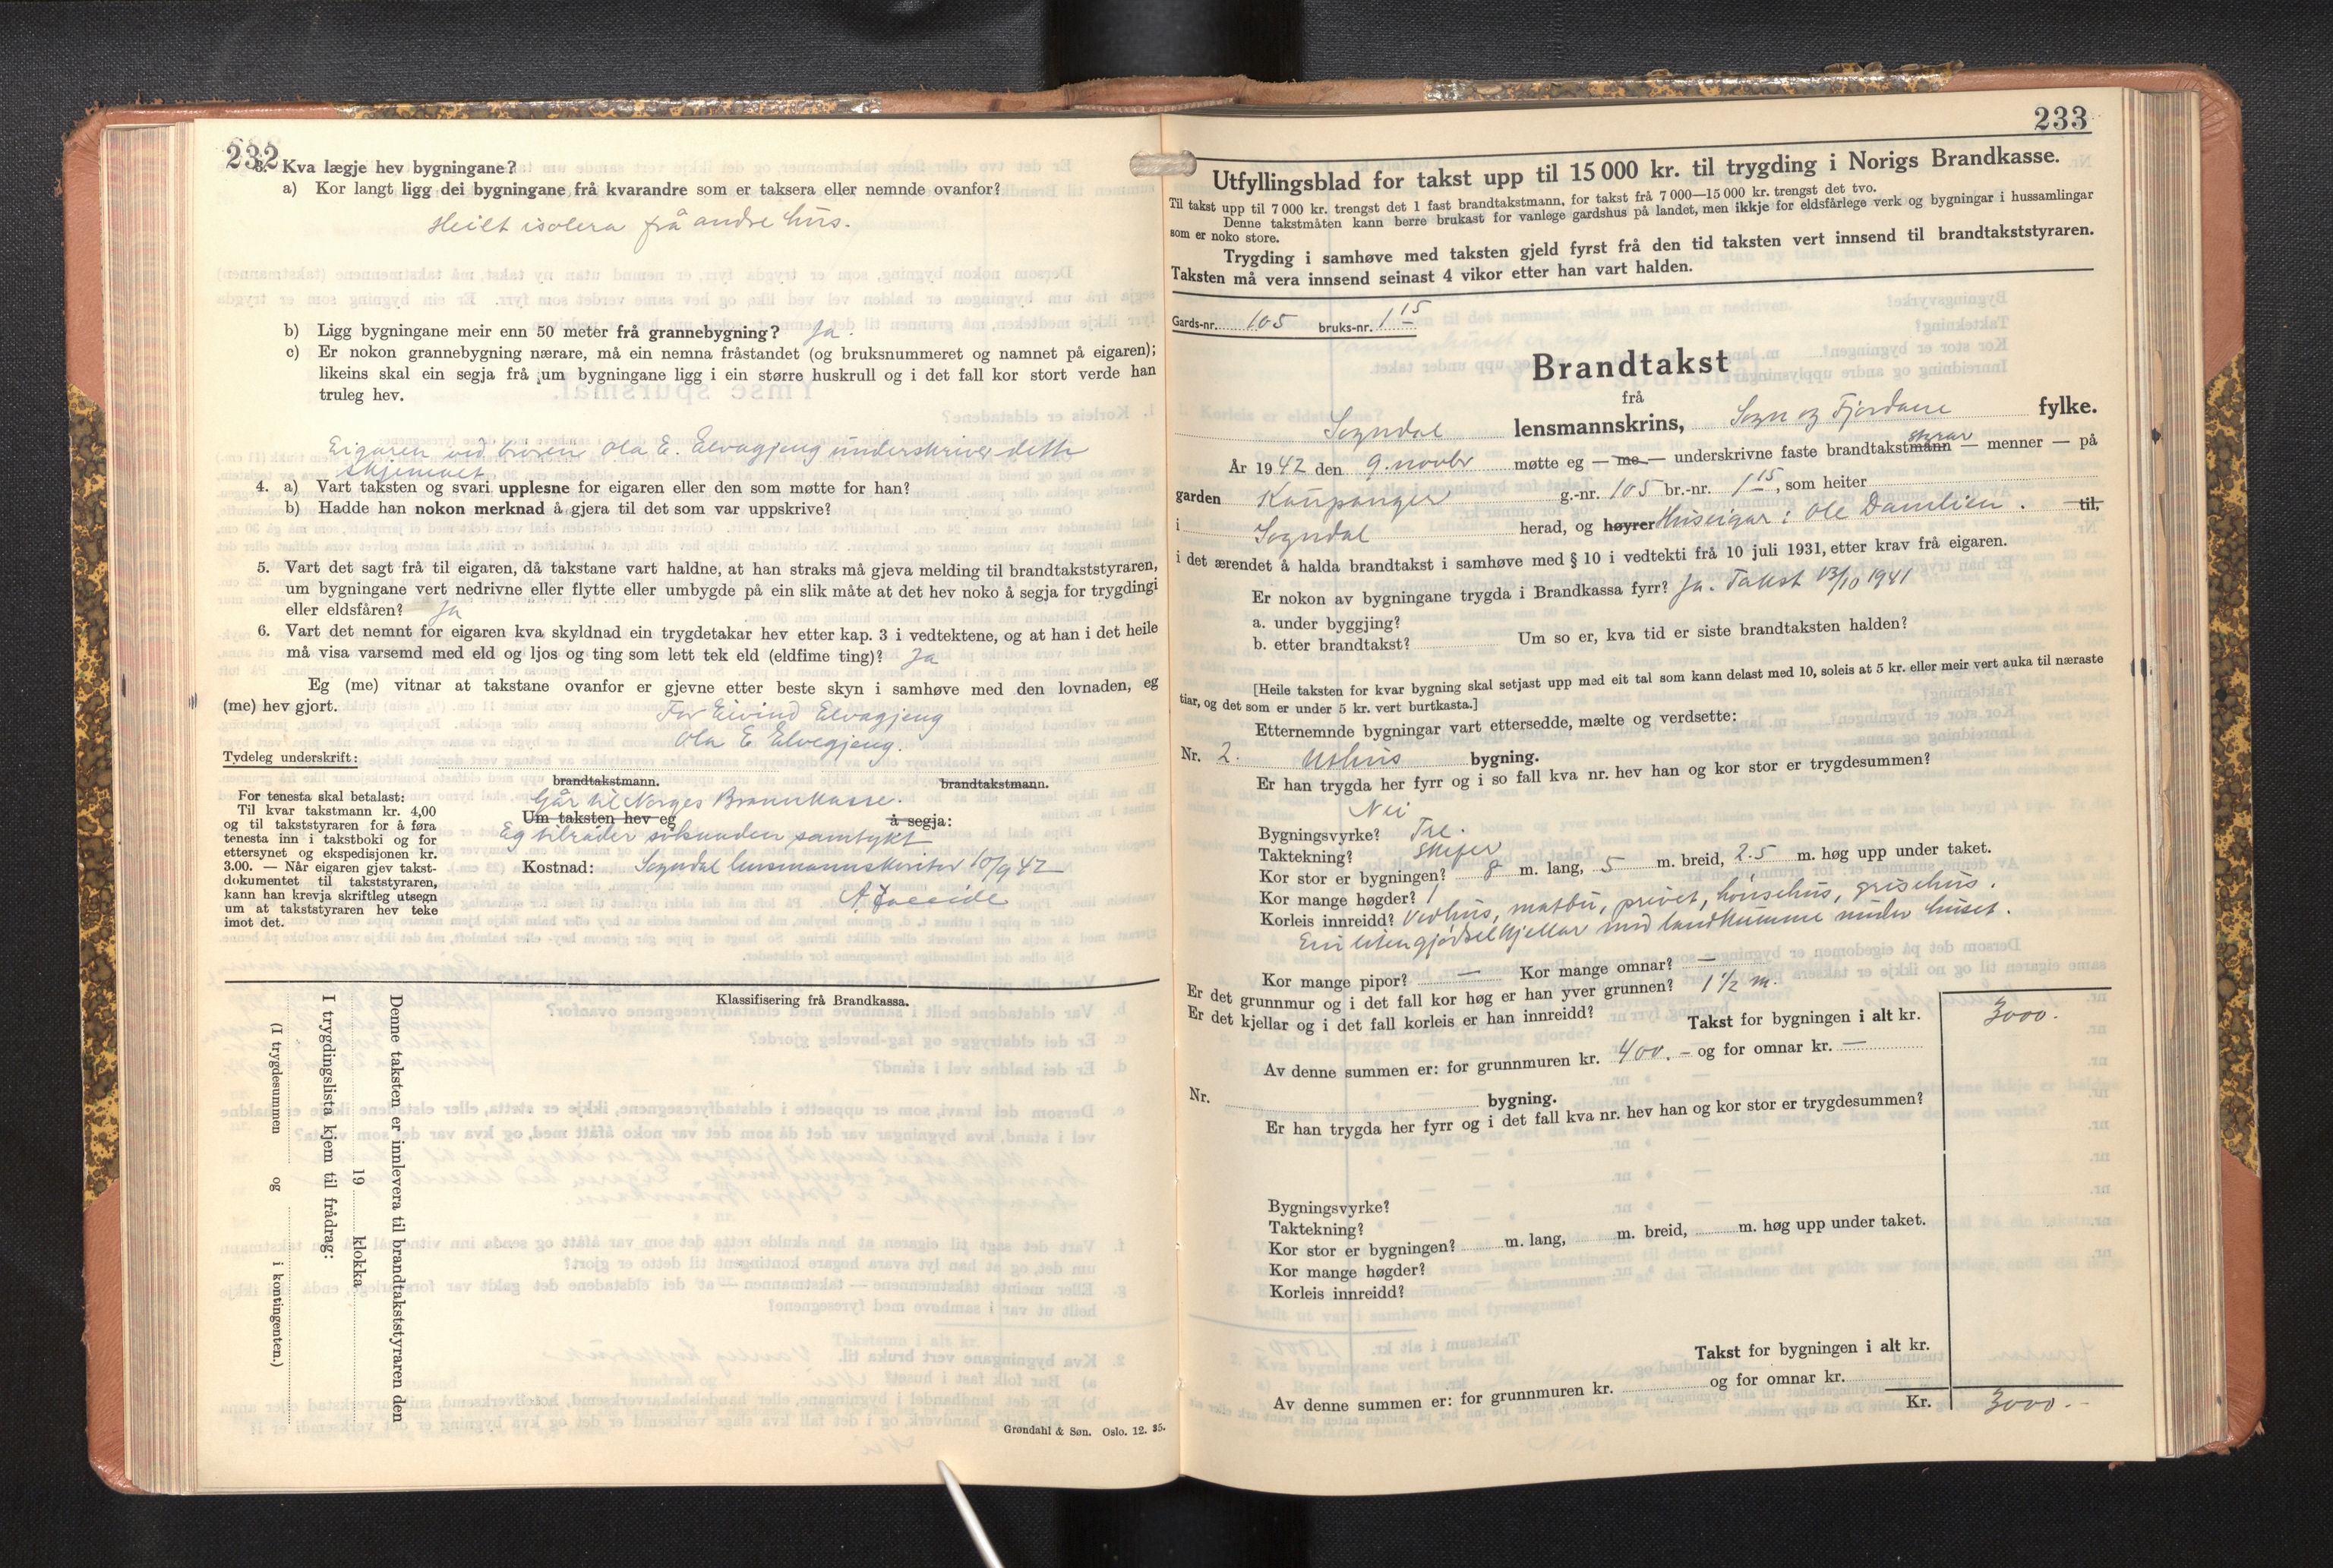 232
3. Kva lægje hev bygningane?
a) Kor langt ligg dei bygningane frå kvarandre som er taksera eller nemnde ovanfor?
Heilt isolera frå andre hus.
b) Ligg bygningane meir enn 50 meter frå grannebygning? Ja.
c) Er nokon grannebygning nærare, må ein nemna fråstandet (og bruksnummeret og namnet på eigaren);
likeins skal ein segja frå um bygningane ligg i ein større huskrull og i det fall kor stort verde han
truleg hev.
Eigaren ved Ola E. Elvagjeng underskriver dette
skjemaet
4. a) Vart taksten og svari upplesne for eigaren eller den som møtte for han?
b) Hadde han nokon merknad å gjera til det som var uppskrive?
5. Vart det sagt frå til eigaren, då takstane vart haldne, at han straks må gjeva melding til brandtakststyraren,
um bygningane vert nedrivne eller flytte eller umbygde på ein slik måte at det hev noko å segja for trygdingi
eller eldsfåren? Ja
6. Vart det nemnt for eigaren kva skyldnad ein trygdetakar hev etter kap. 3 i vedtektene, og at han i det heile
må visa varsemd med eld og ljos og ting som lett tek eld (eldfime ting)? Ja
Eg (me) vitnar at takstane ovanfor er gjevne etter beste skyn i samhøve med den lovnaden, eg
(me) hev gjort.
For Eivind Elvagjeng
Ola E. Elvegjeng.
Tydeleg underskrift:
brandtakstmann. brandtakstmann.
For tenesta skal betalast:
Til kvar takstmann kr. 4,00
og til takststyraren for å føra
tenesta inn i takstboki og for
ettersynet og ekspedisjonen kr.
3.00. — Når eigaren gjev takst-
dokumentet til takststyraren,
kann han krevja skriftleg utsegn
um at takststyraren hev teke
imot det.
Går til Norges Brannkasse.
Um taksten hev eg å segja:
Eg tilråder søknaden samtykt
Kostnad: Sogndal lensmannskontor 10/9 42
Klassifisering frå Brandkassa.
Denne taksten er innlevera til brandtakststyraren den
19 klokka
I trygdingslista kjem til frådrag:
(I trygdesummen og i kontingenten.)
Grøndahl & Søn. Oslo. 12. 35.
233
Utfyllingsblad for takst upp til 15 000 kr. til trygding i Norigs Brandkasse.
Til takst upp til 7 000 kr. trengst det 1 fast brandtakstmann, for takst frå 7 000—15 000 kr. trengst det tvo.
Denne takstmåten kann berre brukast for vanlege gardshus på landet, men ikkje for eldsfårlege verk og bygningar i hussamlingar
som er noko store.
Trygding i samhøve med taksten gjeld fyrst frå den tid taksten vert innsend til brandtakststyraren.
Taksten må vera innsend seinast 4 vikor etter han vart halden.
Gards-nr. 105 bruks-nr. 1 15
Brandtakst
frå
Sogndal lensmannskrins, Sogn og Fjordane fylke.
År 1942 den 9. novbr møtte eg — me — underskrivne faste brandtakstmann styrar — menner — på
garden Kaupanger g.-nr. 105 br.-nr. 1 15, som heiter
i Sogndal herad, og høyrer Huseigar: Ole Damlien. til,
i det ærendet å halda brandtakst i samhøve med § 10 i vedtekti frå 10 juli 1931, etter krav frå eigaren.
Er nokon av bygningane trygda i Brandkassa fyrr? Ja. Takst 13/10 1941
a. under byggjing?
b. etter brandtakst? Um so er, kva tid er siste brandtaksten halden?
[Heile taksten for kvar bygning skal setjast upp med eit tal som kann delast med 10, soleis at 5 kr. eller meir vert auka til næraste
tiar, og det som er under 5 kr. vert burtkasta.]
Etternemnde bygningar vart ettersedde, mælte og verdsette:
Nr. 2. Uthus bygning.
Er han trygda her fyrr og i so fall kva nr. hev han og kor stor er trygdesummen?
Nei
Bygningsvyrke? Tre.
Taktekning? Skifer
Kor stor er bygningen? 8 m. lang, 5 m. breid, 2.5 m. høg upp under taket.
Kor mange høgder? 1
Korleis innreidd? Vedhus, matbu, privet, hønsehus, grisehus.
Ein liten gjødselkjellar med landkumme under huset.
Kor mange pipor? — Kor mange omnar? —
Er det grunnmur og i det fall kor høg er han yver grunnen? 1 1/2 m.
Er det kjellar og i det fall korleis er han innreidd?
Takst for bygningen i alt kr. 3000.
Av denne summen er: for grunnmuren kr. 400. — og for omnar kr. —
Nr. bygning.
Er han trygda her fyrr og i det fall kva nr. hev han og kor stor er trygdesummen?
Bygningsvyrke?
Taktekning?
Kor stor er bygningen? m. lang, m. breid, m. høg upp under taket.
Kor mange høgder?
Korleis innreidd?
Takst for bygningen i alt kr.
Av denne summen er: for grunnmuren kr. og for omnar kr.
Kr. 3000.-